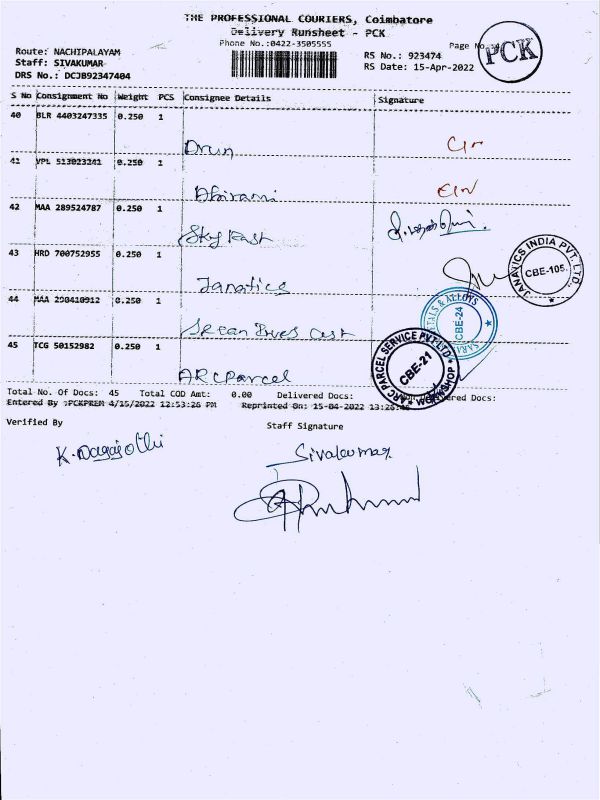 THE PROFESSIONAL COURIERS, Coimbatore
Delivery Runsheet - PCK
Phone No.:0422-3505555
Page No.
PCK
Route: NACHIPALAYAM
Staff: SIVAKUMAR
DRS No.: DCJB92347404
RS No.: 923474
RS Date: 15-Apr-2022
S No Consignment No Weight PCS Consignee Details Signature
40 BLR 4403247335 0.250 1
Arun
41 VPL 513023241 0.250 1
Abirami
42 MAA 289524787 0.250 1
Sky
43 HRD 700752955 0.250 1
Janatics
JANATICS INDIA PVT. LTD.,
CBE-105.
44 MAA 290410912 0.250 1
METALS & ALLOYS
CBE-24
45 TCG 50152982 0.250 1
ARC Parcel
ARC PARCEL SERVICE PVT LTD
CBE-21
WORKSHOP
Total No. Of Docs: 45 Total COD Amt: 0.00 Delivered Docs:
Docs:
Entered By :PCKPREM 4/15/2022 12:53:26 PM Reprinted On: 15-04-2022
Verified By
Staff Signature
K. Nagajothi
Sivakumar